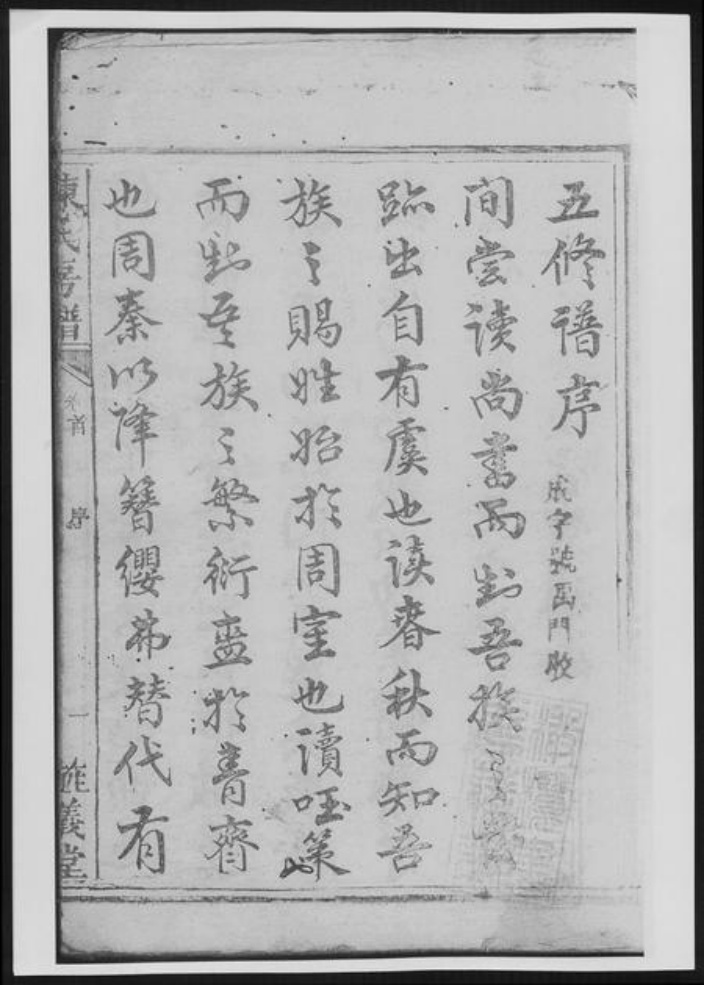 五修谱序
成字號禹門收
间尝读尚書而吾族之
跡出自有虞也读春秋而知吾
族之賜姓始於周室也讀国策
而吾族之繁衍盛於青齊
也周秦以降簪纓弗替代有
陳氏房譜 卷首 序 一 旌義堂